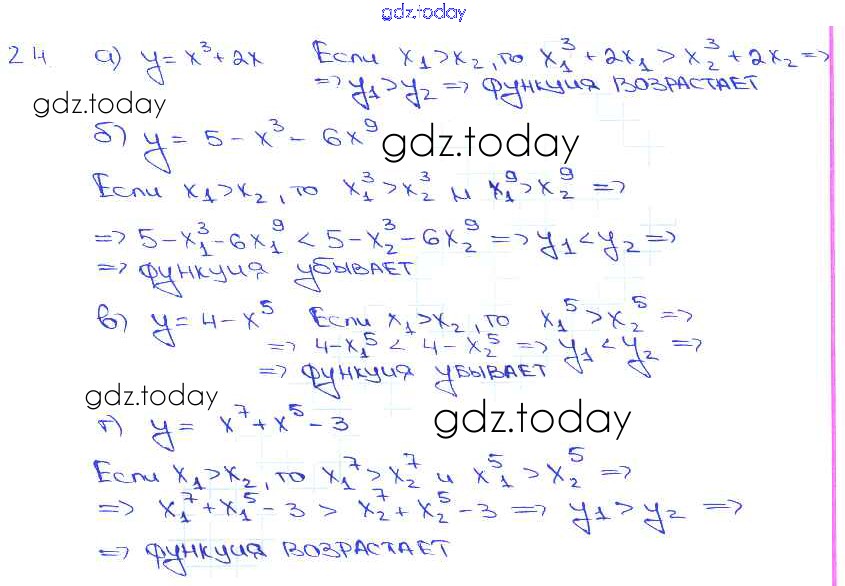 gdz.today
24 а) y = x³ + 2x Если x₁ > x₂, то x₁³ + 2x₁ > x₂³ + 2x₂ =>
=> y₁ > y₂ => функция возрастает
gdz.today
б) y = 5 - x³ - 6x⁹
gdz.today
Если x₁ > x₂, то x₁³ > x₂³ и x₁⁹ > x₂⁹ =>
=> 5 - x₁³ - 6x₁⁹ < 5 - x₂³ - 6x₂⁹ => y₁ < y₂ =>
=> функция убывает
в) y = 4 - x⁵ Если x₁ > x₂, то x₁⁵ > x₂⁵ =>
=> 4 - x₁⁵ < 4 - x₂⁵ => y₁ < y₂ =>
=> функция убывает
gdz.today
gdz.today
г) y = x⁷ + x⁵ - 3
Если x₁ > x₂, то x₁⁷ > x₂⁷ и x₁⁵ > x₂⁵ =>
=> x₁⁷ + x₁⁵ - 3 > x₂⁷ + x₂⁵ - 3 => y₁ > y₂ =>
=> функция возрастает